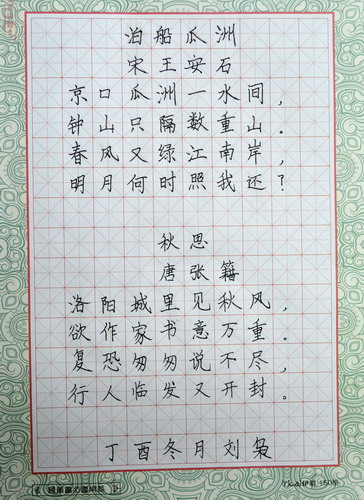 泊船瓜洲
宋王安石
京口瓜洲一水间，
钟山只隔数重山。
春风又绿江南岸，
明月何时照我还？
秋思
唐张籍
洛阳城里见秋风，
欲作家书意万重。
复恐匆匆说不尽，
行人临发又开封。
丁酉冬月刘枭